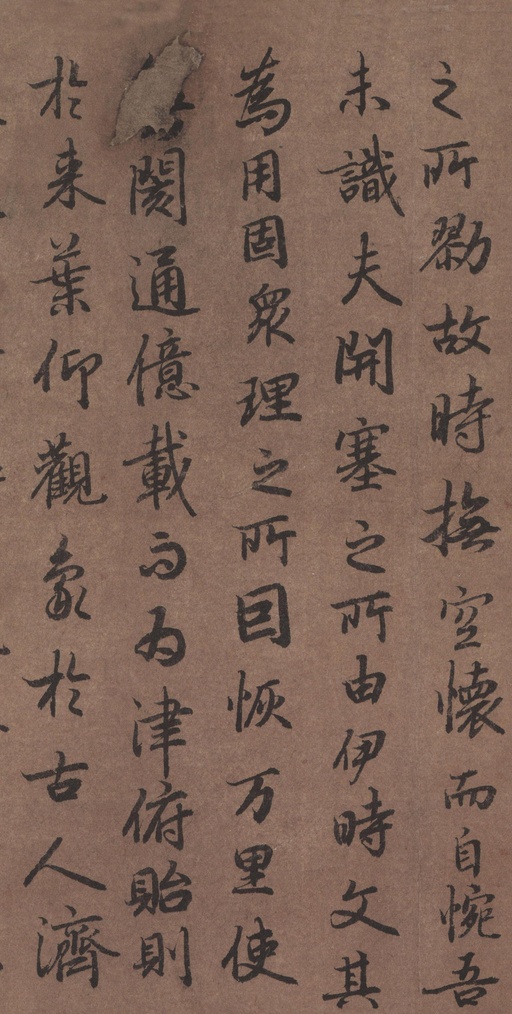 之所勠故時撫空懷而自惋吾
未識夫開塞之所由伊時文其
為用固衆理之所因恢万里使
閡通億載而为津俯貽則
於来葉仰觀象於古人濟